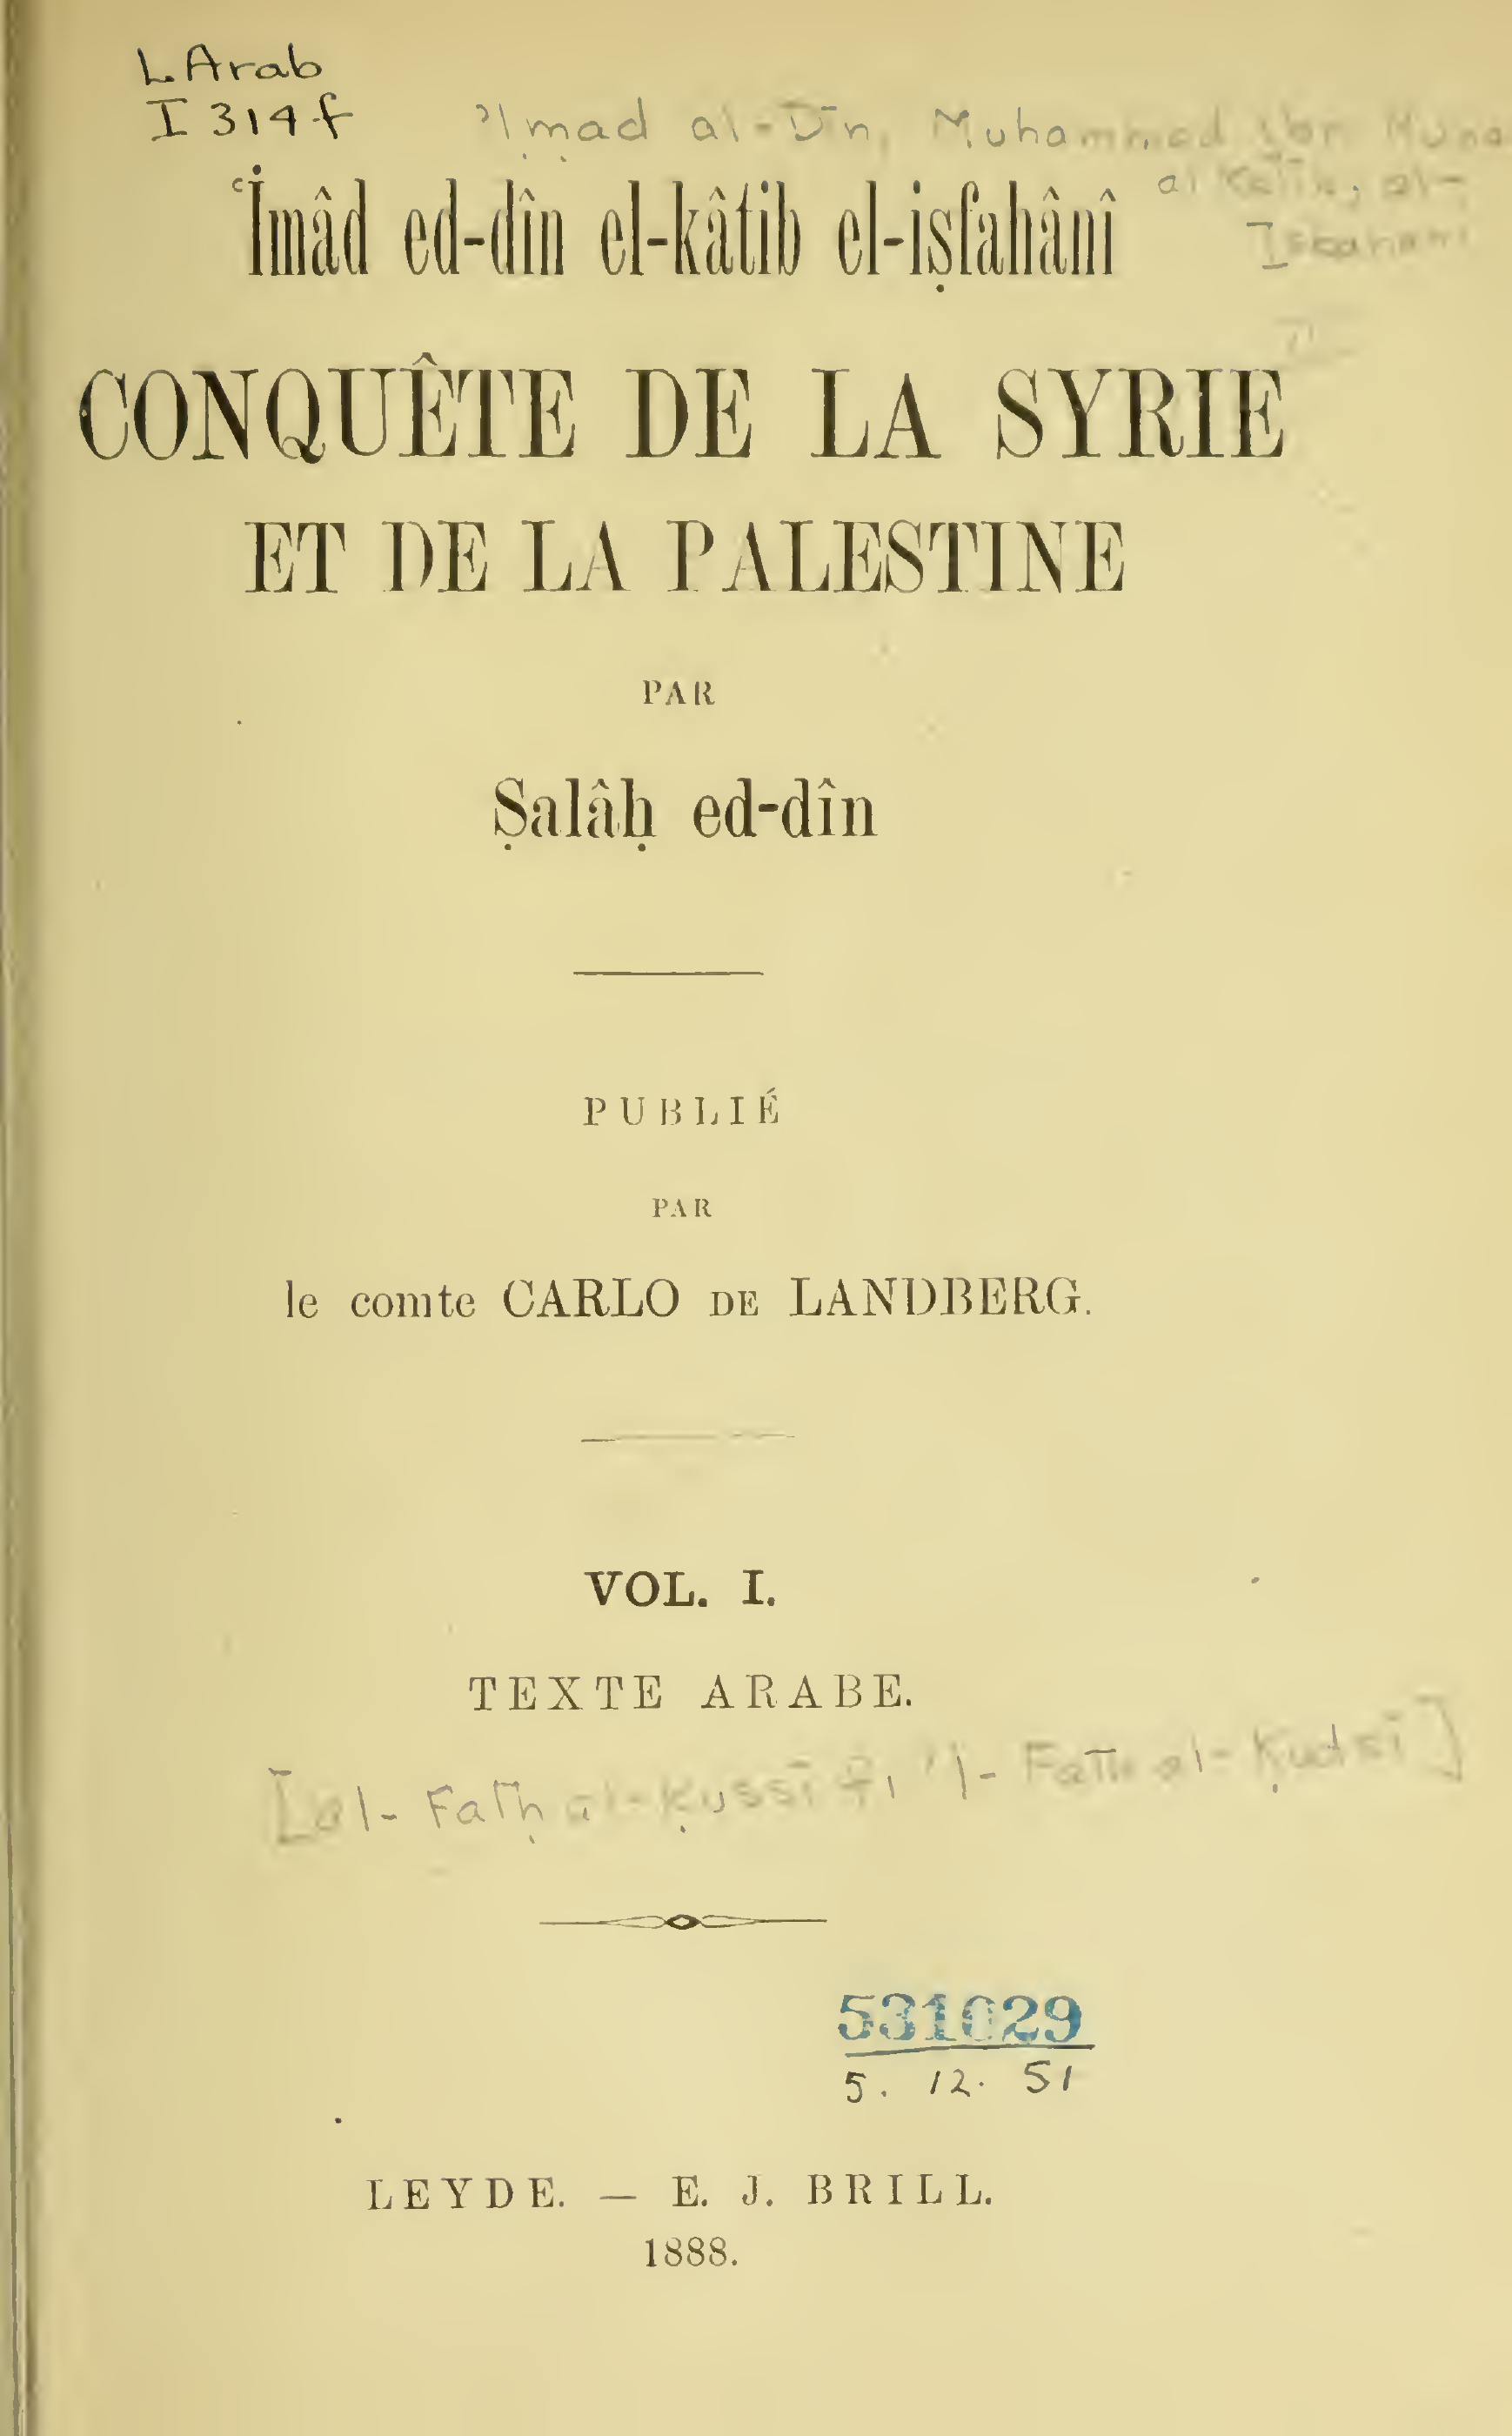 L Arab
I 314 f
ʿImad al-Dīn, Muhammad ibn
al Kātib, al-
Isbahani
ʿImâd ed-dîn el-kâtib el-iṣfahânî
CONQUÊTE DE LA SYRIE
ET DE LA PALESTINE
PAR
Ṣalâḥ ed-dîn
PUBLIÉ
PAR
le comte CARLO DE LANDBERG.
VOL. I.
TEXTE ARABE.
[al-Fatḥ al-Ḳussī fi 'l-Fatḥ al-Ḳudsī]
531029
5. 12. 51
LEYDE. — E. J. BRILL.
1888.